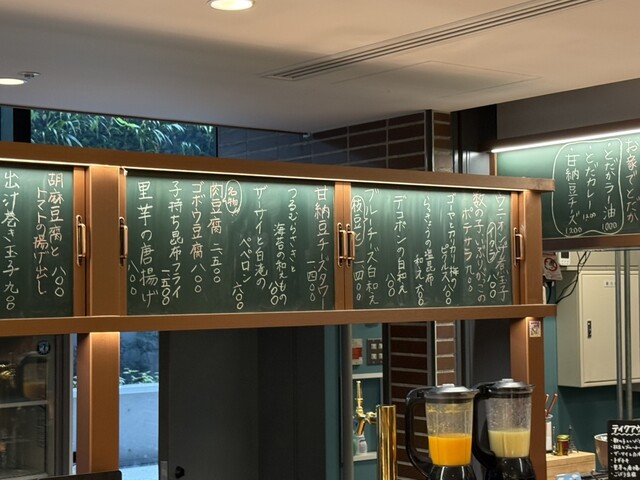 お昼でとんか
とんかラー油
1000
とんかカレー
1200
甘納豆チーズ
1200
数の子いぶりがっこの
ポテサラ 九〇〇
ゴーヤとカリカリ梅
ピクルス 六〇〇
らっきょうの塩昆布
和え 六〇〇
デコポンの白和え
八〇〇
ブルーチーズ白和え
(枝豆入り) 一四〇〇
甘納豆チーズタワー
一四〇〇
つるむらさきと
海苔の和えもの
八〇〇
ザーサイと白滝の
ペペロン 六〇〇
名物
肉豆腐 二五〇〇
ゴボウ豆腐 八〇〇
子持ち昆布フライ
一五〇〇
里芋の唐揚げ
八〇〇
胡麻豆腐と
トマトの揚げ出し
八〇〇
出汁巻き玉子 九〇〇